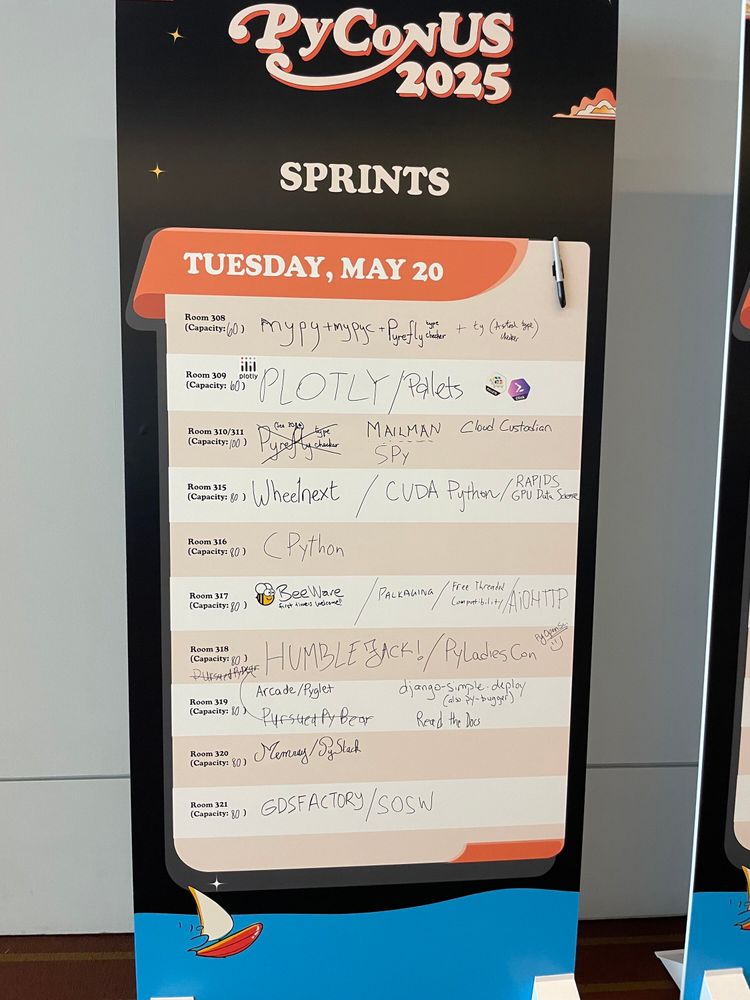 PyConUS
2025
SPRINTS
TUESDAY, MAY 20
Room 308
(Capacity: 60)
mypy + mypyc + Pyrefly type checker + ty (Astral type checker)
Room 309
(Capacity: 60)
plotly
PLOTLY / Pallets
Room 310/311
(Capacity: 100)
Pyrefly type checker
MAILMAN
Cloud Custodian
SPy
Room 315
(Capacity: 80)
Wheelnext / CUDA Python / RAPIDS
GPU Data Science
Room 316
(Capacity: 80)
CPython
Room 317
(Capacity: 80)
BeeWare
first timers welcome!!
/ PACKAGING / Free Threaded
Compatibility / AiOHTTP
Room 318
(Capacity: 80)
HUMBLE JACK! / PyLadiesCon
PursuedPyBear
Room 319
(Capacity: 80)
Arcade/Pyglet
django-simple-deploy
(also py-bugger)
PursuedPyBear
Read the Docs
Room 320
(Capacity: 80)
Memray/PyStack
Room 321
(Capacity: 80)
GDSFACTORY/SOSW